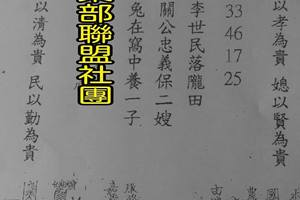 以孝為貴 媳以賢為貴
33 46 17 25
李世民落隴田
關公忠義保二嫂
兔在窩中養一子
部聯盟社團
以清為貴 民以勤為貴